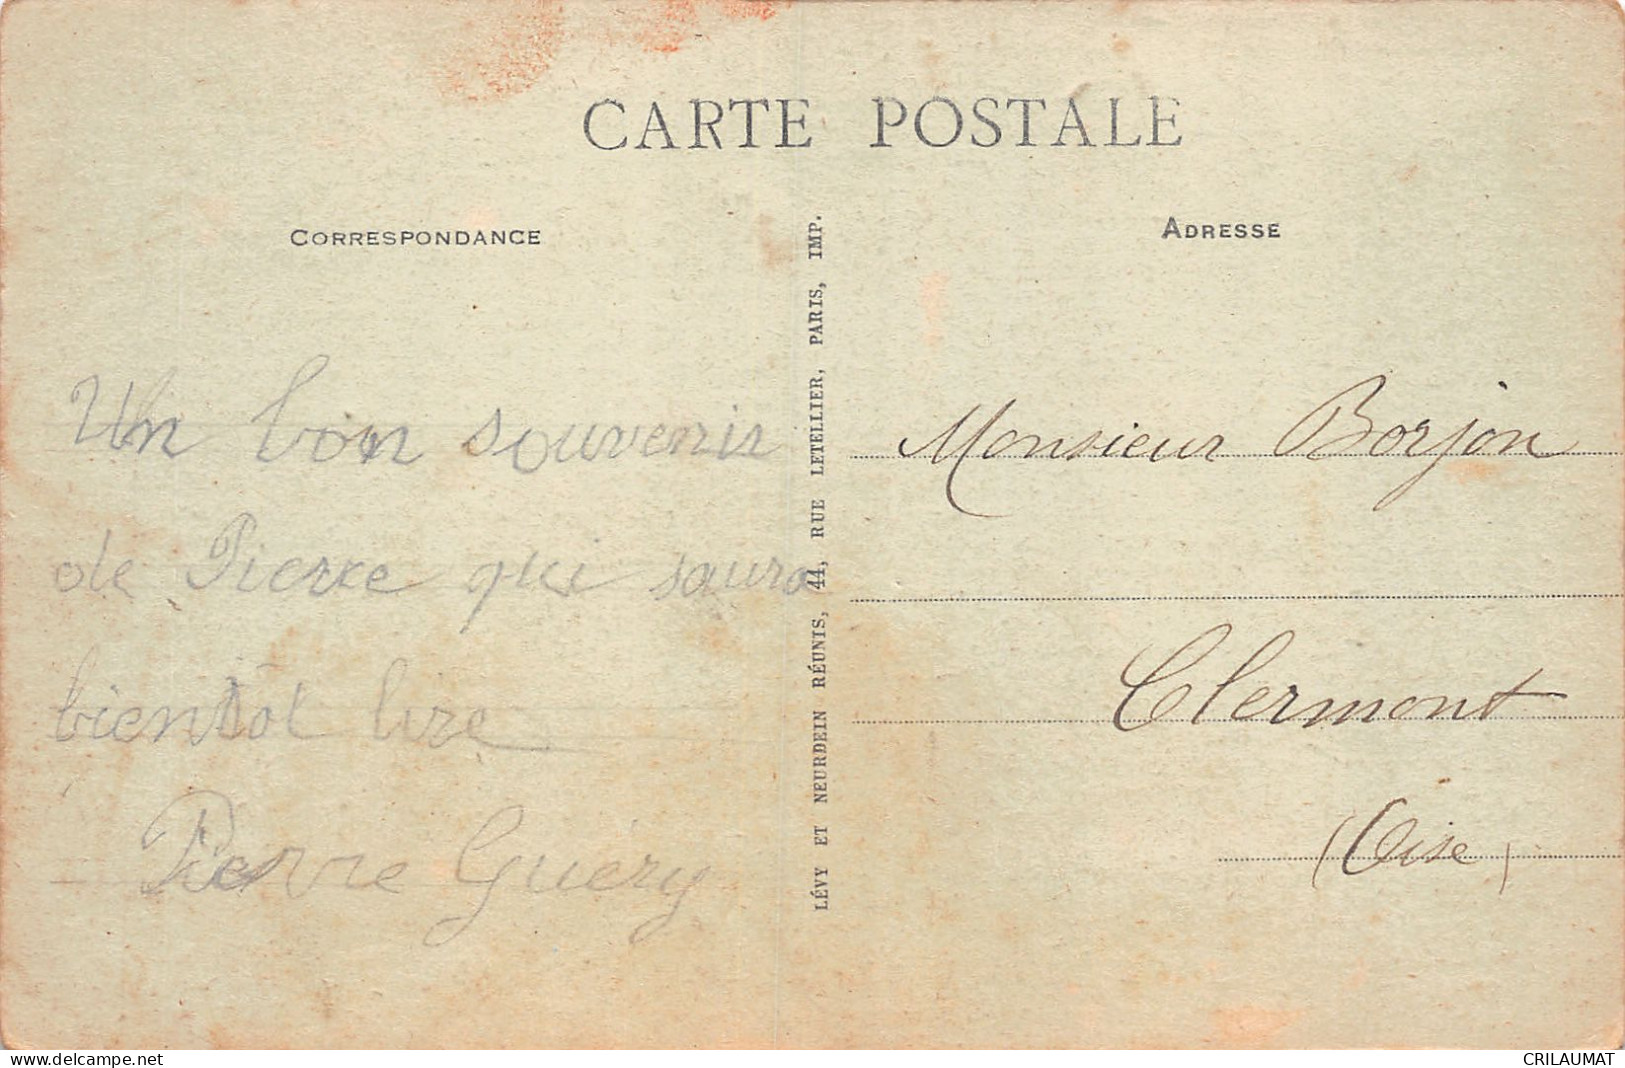 CARTE POSTALE
CORRESPONDANCE
ADRESSE
Un bon souvenir
de Pierre qui saura
bientôt lire
Pierre Guéry
LÉVY ET NEURDEIN RÉUNIS, 44, RUE LETELLIER, PARIS, IMP.
Monsieur Borjon
Clermont
(Oise)
delcampe.net
CRILAUMAT